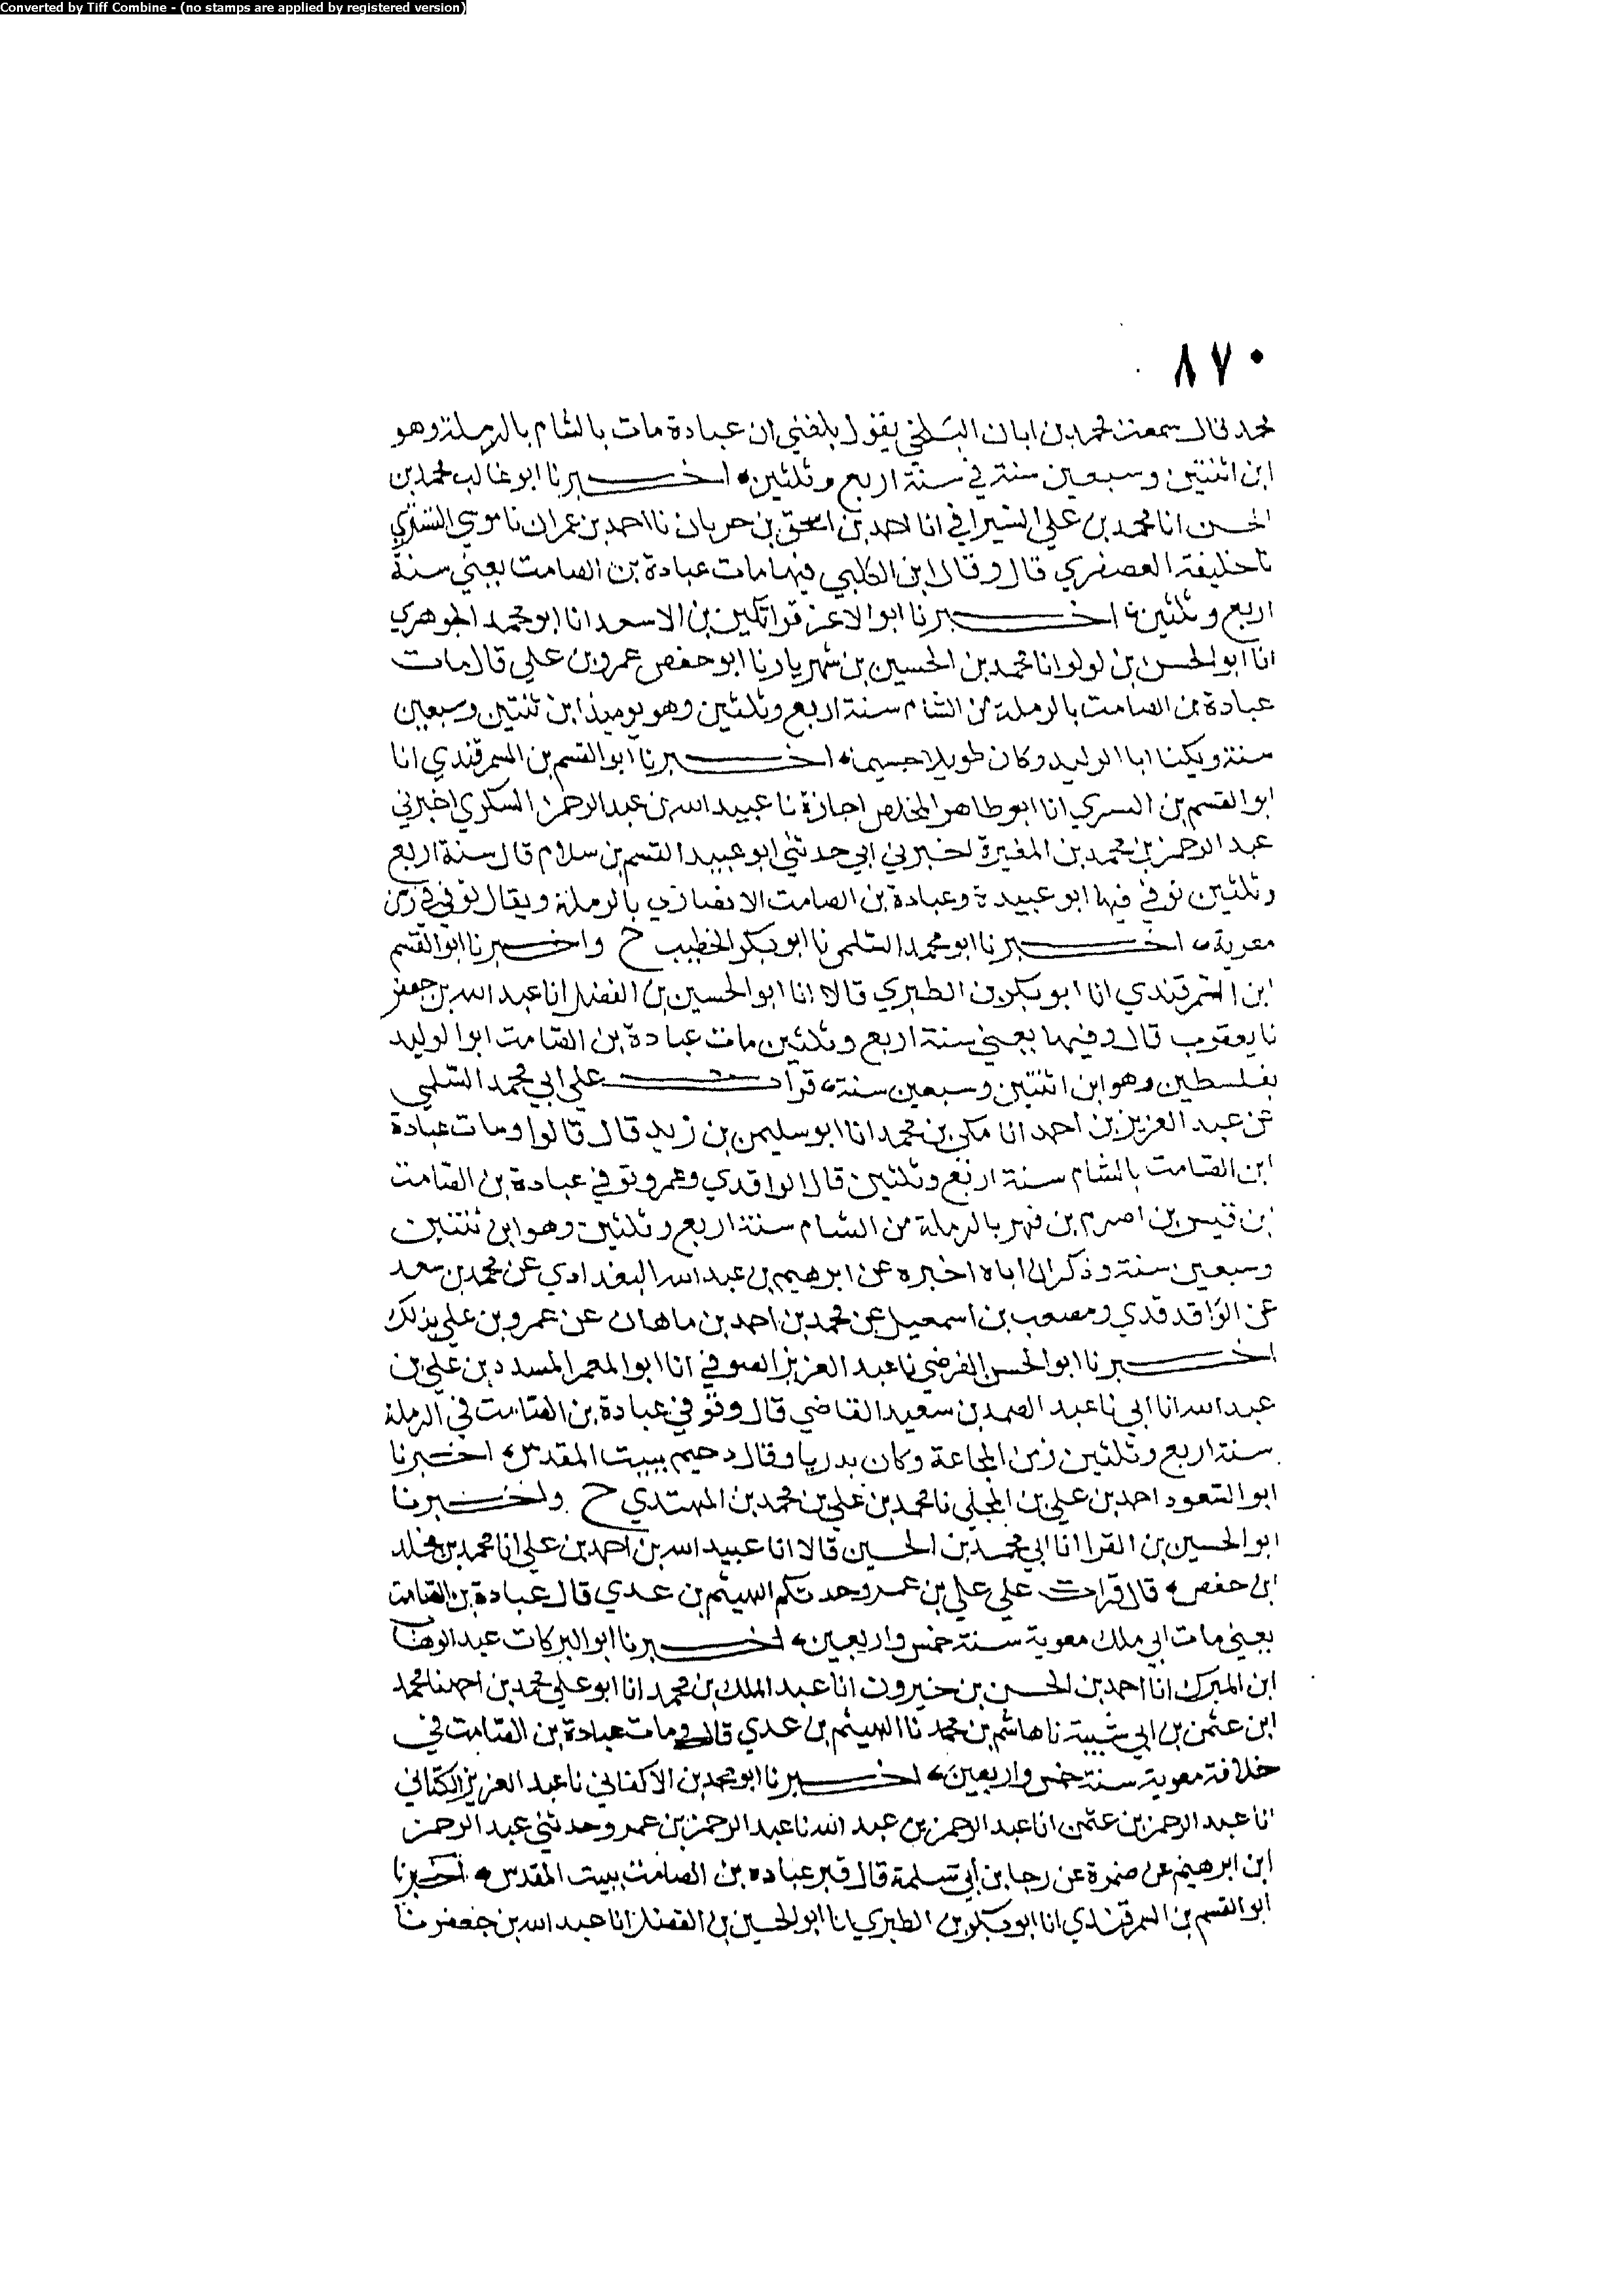 Converted by Tiff Combine - (no stamps are applied by registered version)
٨٧٠
محمد قال سمعت محمد بن ابان البلخي يقول بلغني ان عبادة مات بالشام بالرملة وهو
ابن اثنتين وسبعين سنة في سنة اربع وثلثين اخبرنا ابو غالب محمد بن
الحسن انا محمد بن علي السيرافي انا احمد بن اسحق بن حربان نا احمد بن عمران نا موسي التستري
نا خليفة العصفري قال وقال ابن الكلبي فيها مات عبادة بن الصامت يعني سنة
اربع وثلثين اخبرنا ابو الاعز قراتكين بن الاسعد انا ابو محمد الجوهري
انا ابو الحسن بن لولو انا محمد بن الحسين بن شهريار نا ابو حفص عمرو بن علي قال مات
عبادة بن الصامت بالرملة من الشام سنة اربع وثلثين وهو يوميذ ابن ثنتين وسبعين
سنة ويكنا ابا الوليد وكان طويلا جسيما اخبرنا ابو القسم بن السمرقندي انا
ابو القسم بن البسري انا ابو طاهر المخلص اجازة نا عبيد الله بن عبد الرحمن السكري اخبرني
عبد الرحمن بن محمد بن المغيرة اخبرني ابي حدثني ابو عبيد القسم بن سلام قال سنة اربع
وثلثين توفي فيها ابو عبيدة وعبادة بن الصامت الانصاري بالرملة ويقال توفي في زمن
معوية اخبرنا ابو محمد السلمي نا ابو بكر الخطيب ح واخبرنا ابو القسم
ابن السمرقندي انا ابو بكر بن الطبري قالا انا ابو الحسين بن الفضل انا عبد الله بن جعفر
نا يعقوب قال وفيها يعني سنة اربع وثلثين مات عبادة بن الصامت ابو الوليد
بفلسطين وهو ابن اثنتين وسبعين سنة قرات علي ابي محمد السلمي
عن عبد العزيز بن احمد انا مكي بن محمد انا ابو سليمن بن زيد قال قالوا ومات عبادة
ابن الصامت بالشام سنة اربع وثلثين قال الواقدي وعمرو توفي عبادة بن الصامت
بن قيس بن اصرم بن فهر بالرملة من الشام سنة اربع وثلثين وهو ابن ثنتين
وسبعين سنة وذكر ان اباه اخبره عن ابرهيم بن عبد الله البغدادي عن محمد بن سعد
عن الواقد قدي ومصعب بن اسمعيل عن محمد بن احمد بن ماهان عن عمرو بن علي بذلك
اخبرنا ابو الحسن الفرضي نا عبد العزيز الصوفي انا ابو المعمر المسدد بن علي بن
عبد الله انا ابي نا عبد الصمد بن سعيد القاضي قال وتوفي عبادة بن الصامت في الرملة
سنة اربع وثلثين زمن المجاعة وكان بدريا وقال دحيم ببيت المقدس اخبرنا
ابو السعود احمد بن علي بن المجلي نا محمد بن علي بن محمد بن المهتدي ح واخبرنا
ابو الحسين بن الفرا انا ابي محمد بن الحسين قالا انا عبيد الله بن احمد بن علي انا محمد بن مخلد
ابن حفص قال قرات علي علي بن عمرو حدثكم الهيثم بن عدي قال عبادة بن الصامت
يعني مات ابي ملك معوية سنة خمس واربعين اخبرنا ابو البركات عبد الوهاب
ابن المبرك انا احمد بن الحسن بن خيرون انا عبد الملك بن محمد انا ابو علي محمد بن احمد نا محمد
ابن عثمن بن ابي شيبة نا هاشم بن محمد نا الهيثم بن عدي قال ومات عبادة بن الصامت في
خلافة معوية سنة خمس واربعين اخبرنا ابو محمد بن الاكفاني نا عبد العزيز الكتاني
انا عبد الرحمن بن عثمن انا عبد الرحمن بن عبد الله نا عبد الرحمن بن عمرو حدثني عبد الرحمن
ابن ابرهيم عن ضمرة عن رجا بن ابي سلمة قال قبر عباده بن الصامت ببيت المقدس اخبرنا
ابو القسم بن السمرقندي انا ابو بكر بن الطبري انا ابو الحسين بن الفضل انا عبد الله بن جعفر نا